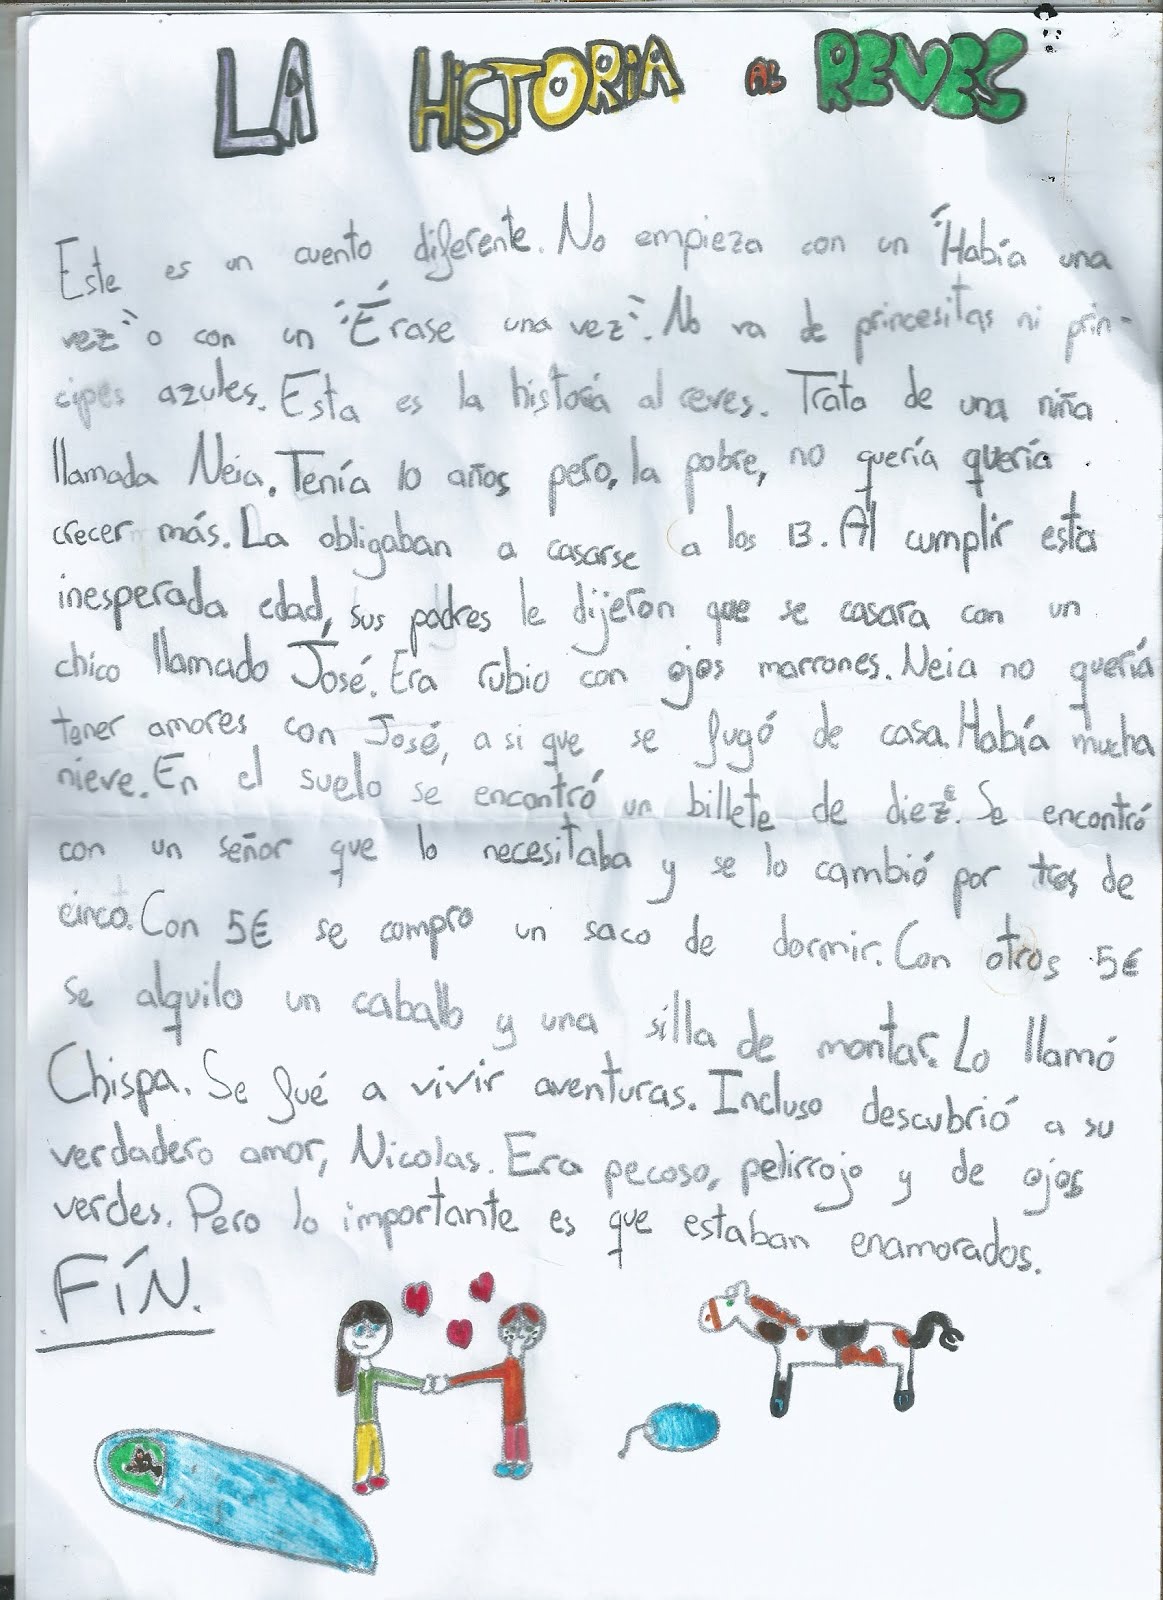 LA HISTORIA AL REVES
Este es un cuento diferente. No empieza con un "Había una
vez" o con un "Érase una vez". No va de princesitas ni prin-
cipes azules. Esta es la historia al reves. Trata de una niña
llamada Neia. Tenía 10 años pero, la pobre, no quería quería
crecer más. La obligaban a casarse a los 13. Al cumplir esta
inesperada edad, sus padres le dijeron que se casara con un
chico llamado José. Era rubio con ojos marrones. Neia no quería
tener amores con José, a si que se fugó de casa. Había mucha
nieve. En el suelo se encontró un billete de diez€. Se encontró
con un señor que lo necesitaba y se lo cambió por tres de
cinco. Con 5€ se compro un saco de dormir. Con otros 5€
se alquilo un caballo y una silla de montar. Lo llamó
Chispa. Se fué a vivir aventuras. Incluso descubrió a su
verdadero amor, Nicolas. Era pecoso, pelirrojo y de ojos
verdes. Pero lo importante es que estaban enamorados.
FíN.